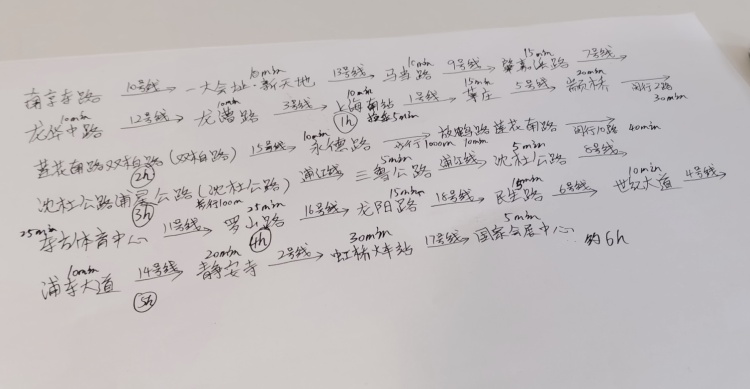 南京东路 10号线→ 一大会址·新天地 10min 13号线→ 马当路 10min 9号线→ 肇嘉浜路 15min 7号线→
龙华中路 10min 12号线→ 龙漕路 10min 3号线→ 上海南站 10min 1号线→ 莘庄 15min 5号线→ 颛桥 20min 闵行2路→ 30min
1h 5min
莲花南路双柏路(双柏路) 15号线→ 永德路 10min 步行1000m→ 放鹤路莲花南路 10min 闵行10路→ 40min
2h
沈杜公路浦星公路(沈杜公路) 浦江线→ 三鲁公路 5min 浦江线→ 沈杜公路 5min 8号线→
3h 步行100m
东方体育中心 25min 11号线→ 罗山路 25min 16号线→ 龙阳路 15min 18号线→ 民生路 15min 6号线→ 世纪大道 10min 4号线→
4h
浦东大道 10min 14号线→ 静安寺 20min 2号线→ 虹桥火车站 30min 17号线→ 国家会展中心 5min 约6h
5h